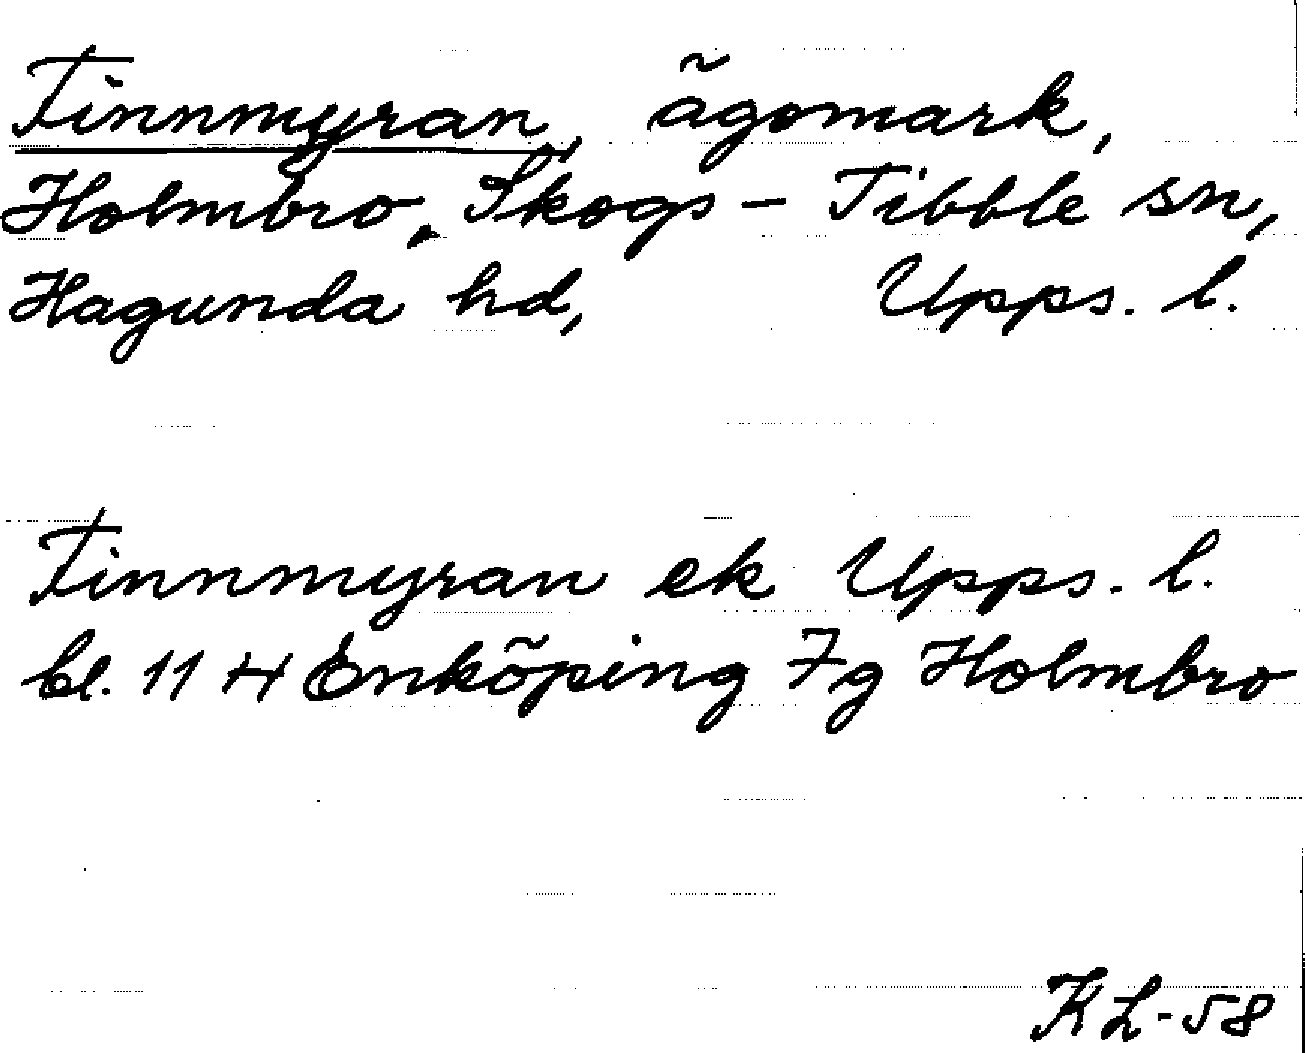 Tinnmyran, ägomark,
Holmbro, Skogs-Tibble sn,
Hagunda hd, Upps. l.
Tinnmyran ek Upps. l.
bl. 11 H Enköping 7g Holmbro
KL-58